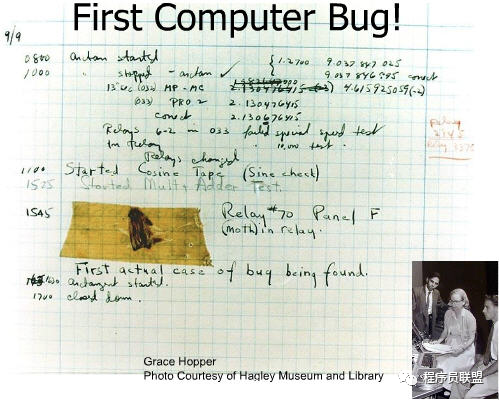 First Computer Bug!
9/9
0800 antan started
1000 " stopped - antan ✓ { 1.2700 9.037 847 025
9.037 846 995 conect
13"uc (032) MP - MC 2.130476415 4.615925059(-2)
(033) PRO 2 2.130476415
conect 2.130676415
Relays 6-2 in 033 failed special speed test
in relay " 10,000 test .
Relays changed
Relay
1100 Started Cosine Tape (Sine check)
1525 Started Mult + Adder Test.
1545 Relay #70 Panel F
(moth) in relay.
First actual case of bug being found.
antangent started.
1700 closed down.
Grace Hopper
Photo Courtesy of Hagley Museum and Library
程序员联盟